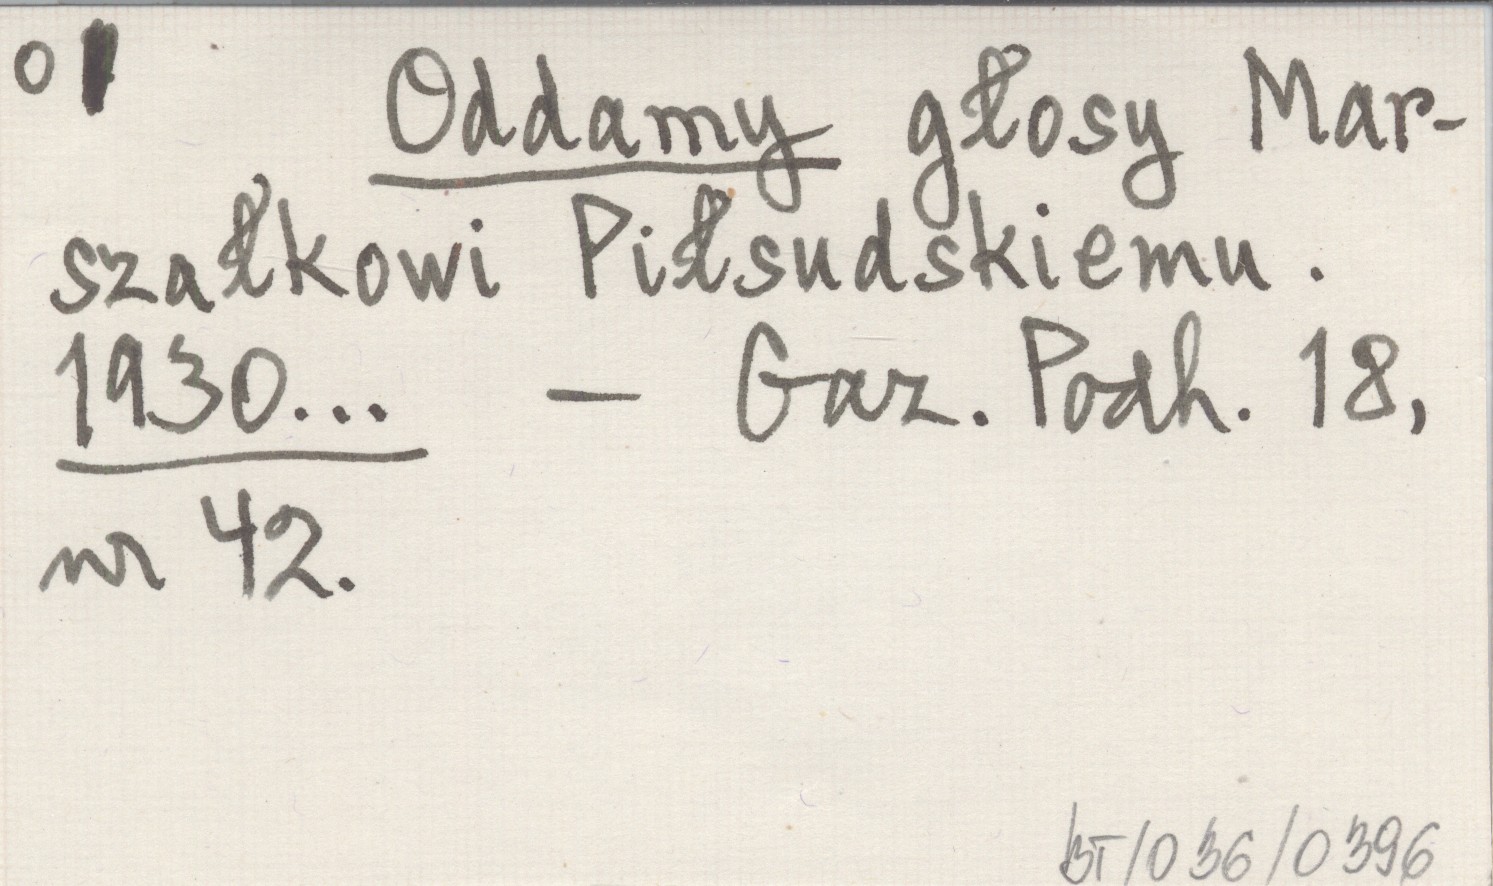 O
Oddamy głosy Mar-
szałkowi Piłsudskiemu.
1930... — Gaz. Podh. 18,
nr 42.
BT/036/0396